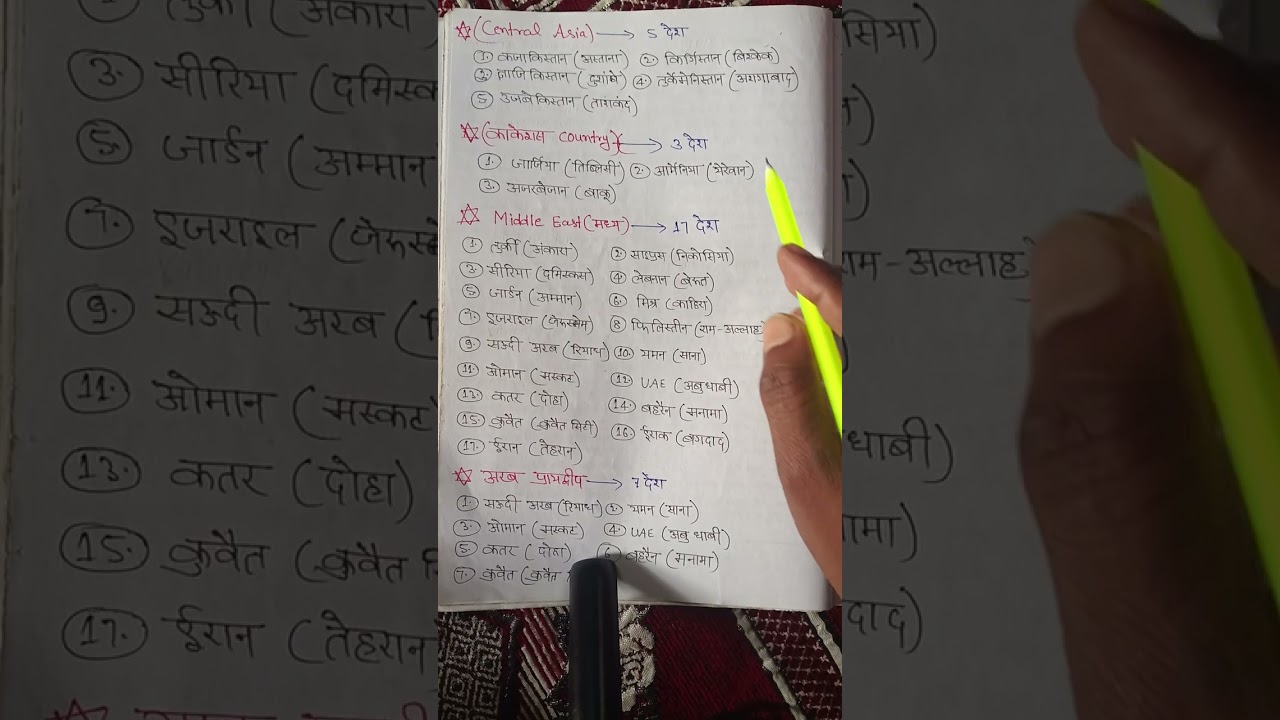 (Central Asia) → 5 देश
1. कजाकिस्तान (अस्ताना) 2. किर्गिस्तान (बिश्केक)
3. ताजिकिस्तान (दुशांबे) 4. तुर्कमेनिस्तान (अशगाबाद)
5. उज्बेकिस्तान (ताशकंद)
(काकेशस country) → 3 देश
1. जार्जिया (तिब्लिसी) 2. आर्मेनिया (येरेवान)
3. अजरबेजान (बाकू)
Middle East (मध्य) → 17 देश
1. तुर्की (अंकारा) 2. साइप्रस (निकोसिया)
3. सीरिया (दमिस्कस) 4. लेबनान (बेरूत)
5. जार्डन (अम्मान) 6. मिश्र (काहिरा)
7. इजराइल (जेरूस्लेम) 8 फिलिस्तीन (राम-अल्लाह)
9. सऊदी अरब (रियाध) 10. यमन (साना)
11. ओमान (मस्कट) 12. UAE (अबुधाबी)
13. कतर (दोहा) 14. बहरैन (मनामा)
15. कुवैत (कुवैत सिटी) 16. ईराक (बगदाद)
17. ईरान (तेहरान)
अरब प्रायद्वीप → 7 देश
1. सऊदी अरब (रियाध) 2. यमन (साना)
3. ओमान (मस्कट) 4. UAE (अबुधाबी)
5. कतर (दोहा) बहरैन (मनामा)
7. कुवैत (कुवैत